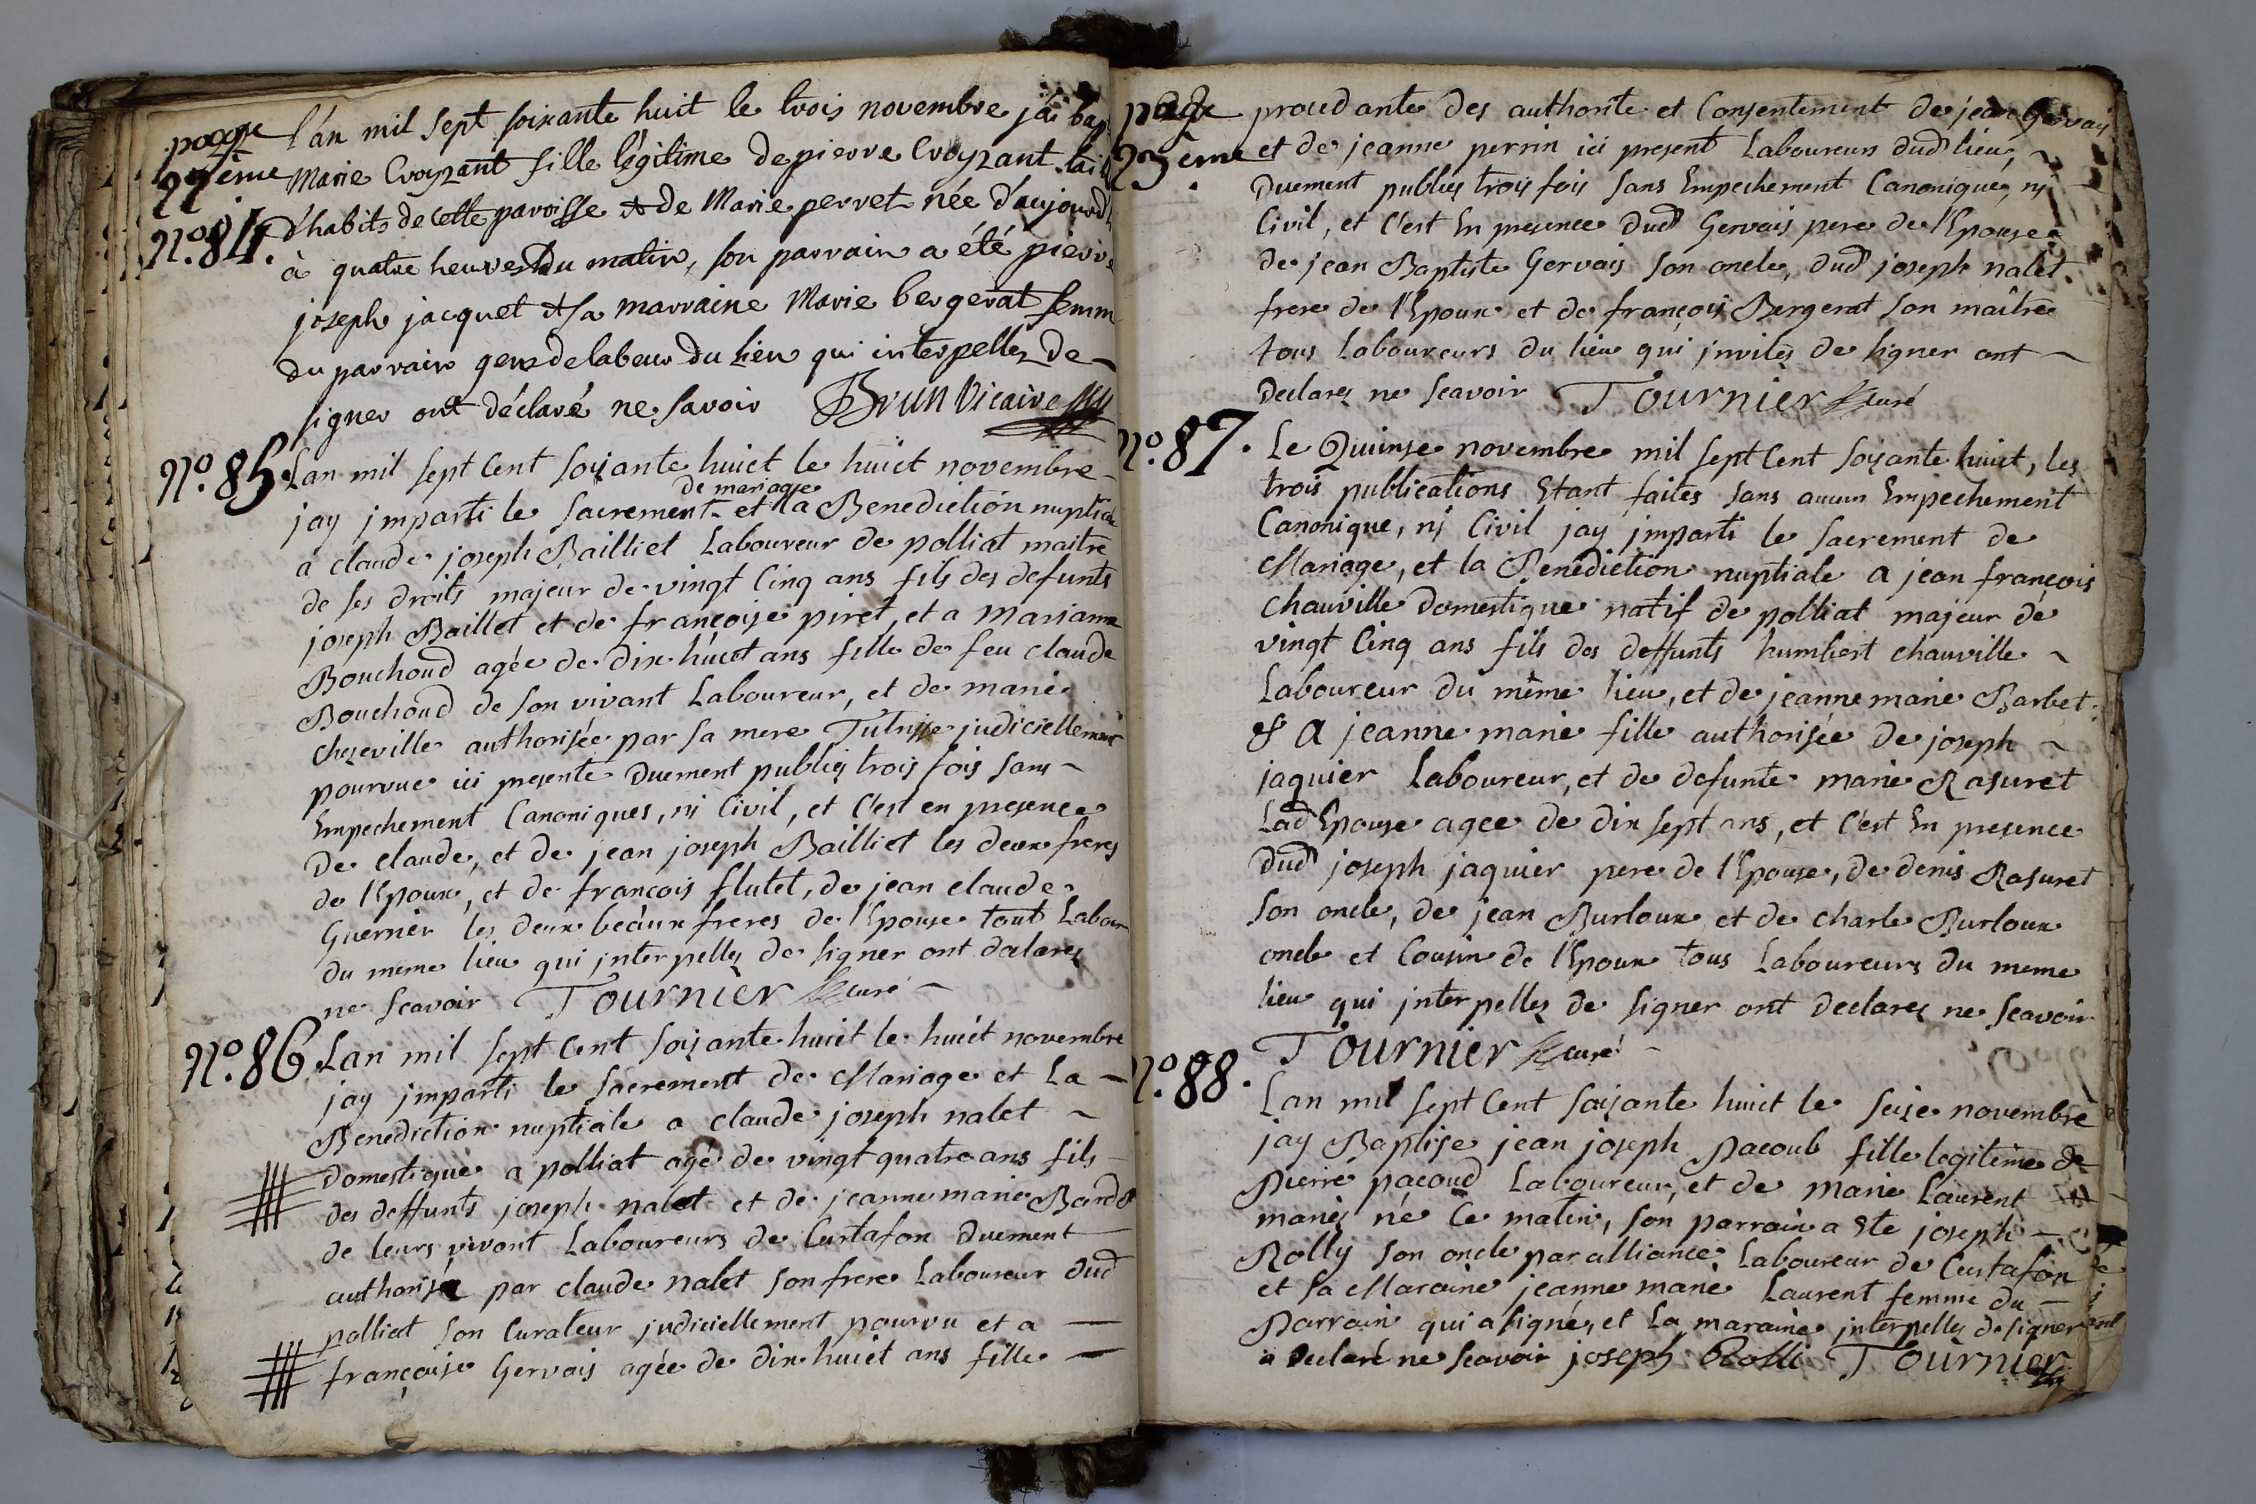 page
22ème
N°. 84.
l'án mil sept soixante huit le trois novembre j'ai bap
Marie Croyzant fille légitime de pierre Croyzant tail
d'habits de cette paroisse & de Marie perret née d'aujourd'h
à quatre heures du matin, son parrain a été pierre
joseph jacquet & sa marraine Marie bergerat femm
du parrain gens de labeur du lieu qui interpellez de
signer ont déclaré ne savoir Brun Vicaire
N°. 85.
Lan mil sept Cent soixante huict le huict novembre
jay jmparti le sacrement de mariage et la Benediction nuptiale
a claude joseph Bailliet Laboureur de polliat maitre
de ses droits majeur de vingt Cinq ans fils des defunts
joseph Baillet et de françoise piret, et a Marianne
Bouchoud agée de dix huict ans fille de feu claude
Bouchoud de son vivant Laboureur, et de marie
Chezeville authorisée par sa mere Tutrisse judiciellement
pourvue ici presente Duement publiez trois fois sans
Empechement Canoniques, nj Civil, et C'est en presence
De claude, et de jean joseph Bailliet les deux freres
de l'Epoux, et de francois flutet, de jean claude
Guernier les deux beaux freres de l'Epouse tout Labour
du meme lieu qui jnterpellez de signer ont declarez
ne Scavoir Tournier curé
N°. 86
Lan mil sept Cent soixante huict le huict novembre
jay jmparti le sacrement de Mariage et La
Benediction nuptiale a claude joseph nalet
Domestique a polliat agé de vingt quatre ans fils
des deffunts joseph nalet et de jeanne marie Bardet
de leurs vivant Laboureurs de Curtafon Duement
authorisé par claude nalet son frere Laboureur dud
polliat son Curateur judiciellement pourvu et a
françoise Gervais agée de dix huict ans fille
page
23ème
procedante des authorite et Consentement de jean Gervais
et de jeanne perrin ici present Laboureurs dud lieu,
Duement publiez trois fois sans Empechement Canonique, nj
Civil, et C'est En presence Dud Gervais pere de l'Epouse
de jean Baptiste Gervais son oncle, dud joseph nalet
frere de l'Epoux et de françois Bergerat son maître
tous Laboureurs du lieu qui jnvités de signer ont
Declarez ne Scavoir Tournier curé
N°. 87.
Le Quinse novembre mil sept Cent soixante huict, les
trois publications Etant faites sans aucun Empechement
Canonique, nj Civil jay jmparti le sacrement de
Mariage, et la Benediction nuptiale a jean françois
Chauville Domestique natif de polliat majeur de
vingt Cinq ans fils des deffunts humbert chauville
Laboureur du même lieu, et de jeanne marie Barbet
& a jeanne marie fille authorisée de joseph
jaquier Laboureur, et de defunte marie Rasuret
Lad Epouse agee de dix sept ans, et C'est En presence
Dud joseph jaquier pere de l'Epouse, de denis Rasuret
son oncle, de jean Burloux et de charle Burloux
oncle et Cousin de l'Epoux tous Laboureurs du meme
lieu qui jnterpellez de signer ont Declarez ne scavoir
Tournier curé
N°. 88.
Lan mil sept Cent soixante huict le seise novembre
jay Baptise jean joseph Pacoub fille legitime de
Pierre pacoud Laboureur, et de marie Laurent
mariez né Ce matin, son parrain a Ete joseph
Rolly son oncle par alliance Laboureur de Curtafon
et sa Maraine jeanne marie Laurent femme du
Parrain qui a signé, et La maraine jnterpellez de signer
a Declaré ne scavoir joseph Rolli Tournier